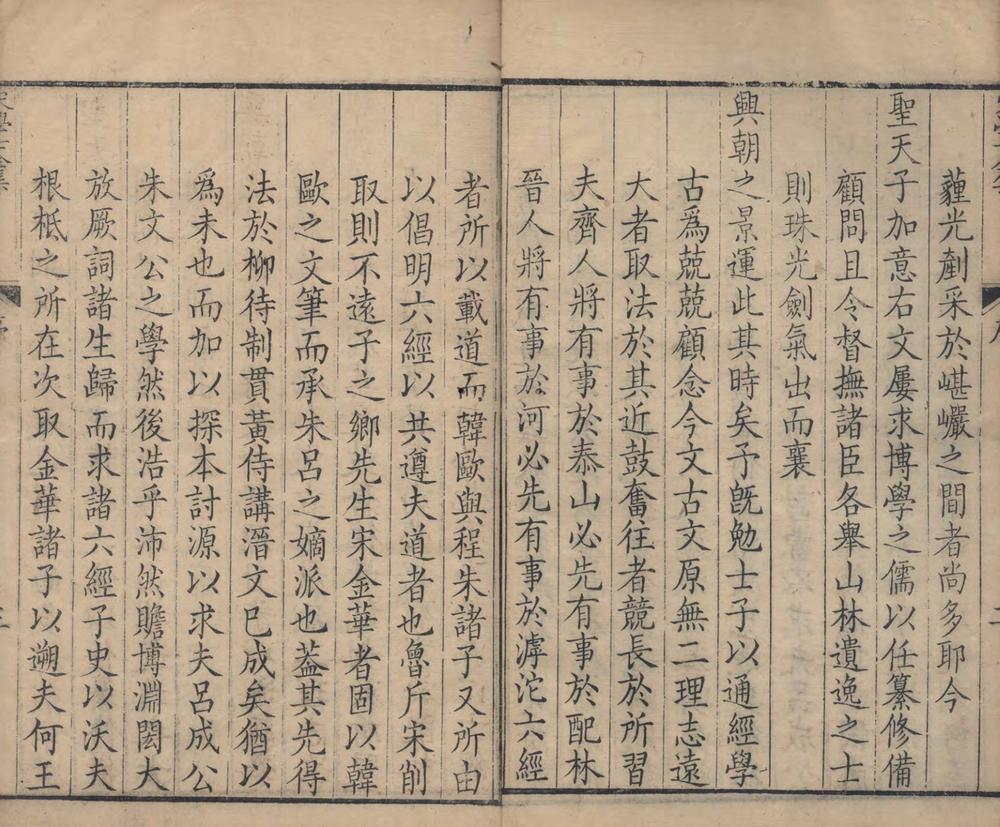 薶光剷采於嵁巖之間者尚多耶今
聖天子加意右文屢求博學之儒以任纂修備
顧問且令督撫諸臣各舉山林遺逸之士
則珠光劍氣出而襄
興朝之景運此其時矣予旣勉士子以通經學
古爲兢兢顧念今文古文原無二理志遠
大者取法於其近鼓奮往者競長於所習
夫齊人將有事於泰山必先有事於配林
晉人將有事於河必先有事於滹沱六經
者所以載道而韓歐與程朱諸子又所由
以倡明六經以共遵夫道者也魯斤宋削
取則不遠子之鄉先生宋金華者固以韓
歐之文筆而承朱呂之嫡派也葢其先得
法於柳待制貫黃侍講溍文已成矣猶以
爲未也而加以探本討源以求夫呂成公
朱文公之學然後浩乎沛然贍博淵閎大
放厥詞諸生歸而求諸六經子史以沃夫
根柢之所在次取金華諸子以遡夫何王